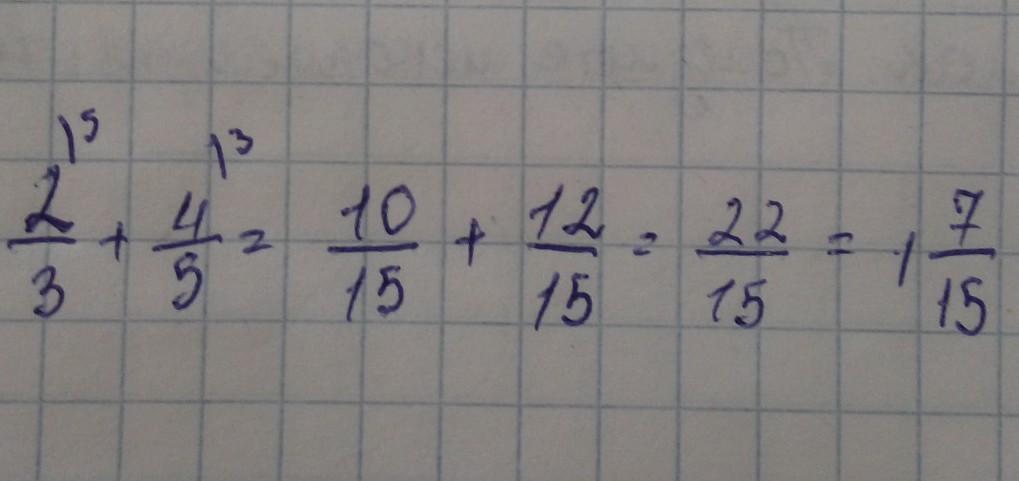 2/3 \5 + 4/5 \3 = 10/15 + 12/15 = 22/15 = 1 7/15